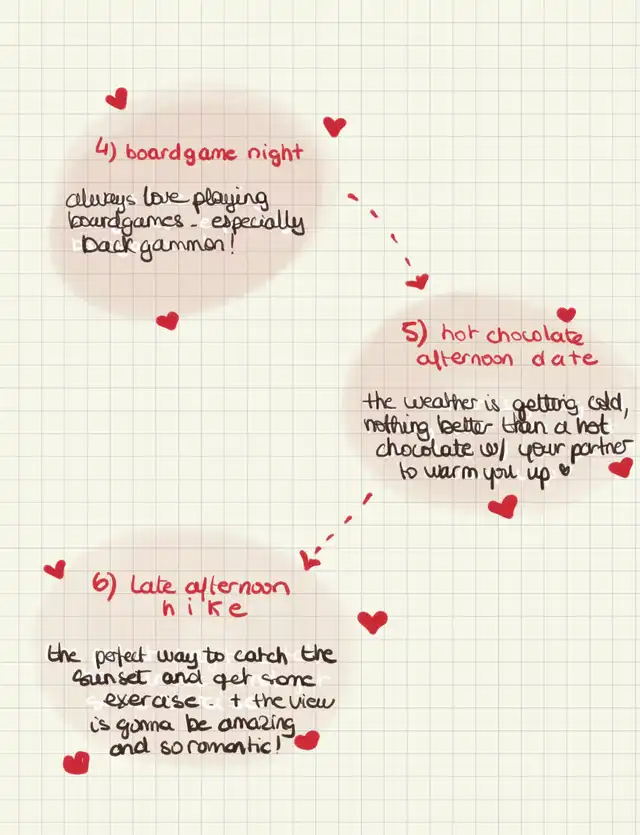 4) boardgame night
always love playing
boardgames - especially
backgammon!
5) hot chocolate
afternoon date
the weather is getting cold,
nothing better than a hot
chocolate w/ your partner
to warm you up ♥
6) Late afternoon
hike
the perfect way to catch the
sunset and get some
exercise. + the view
is gonna be amazing
and so romantic!